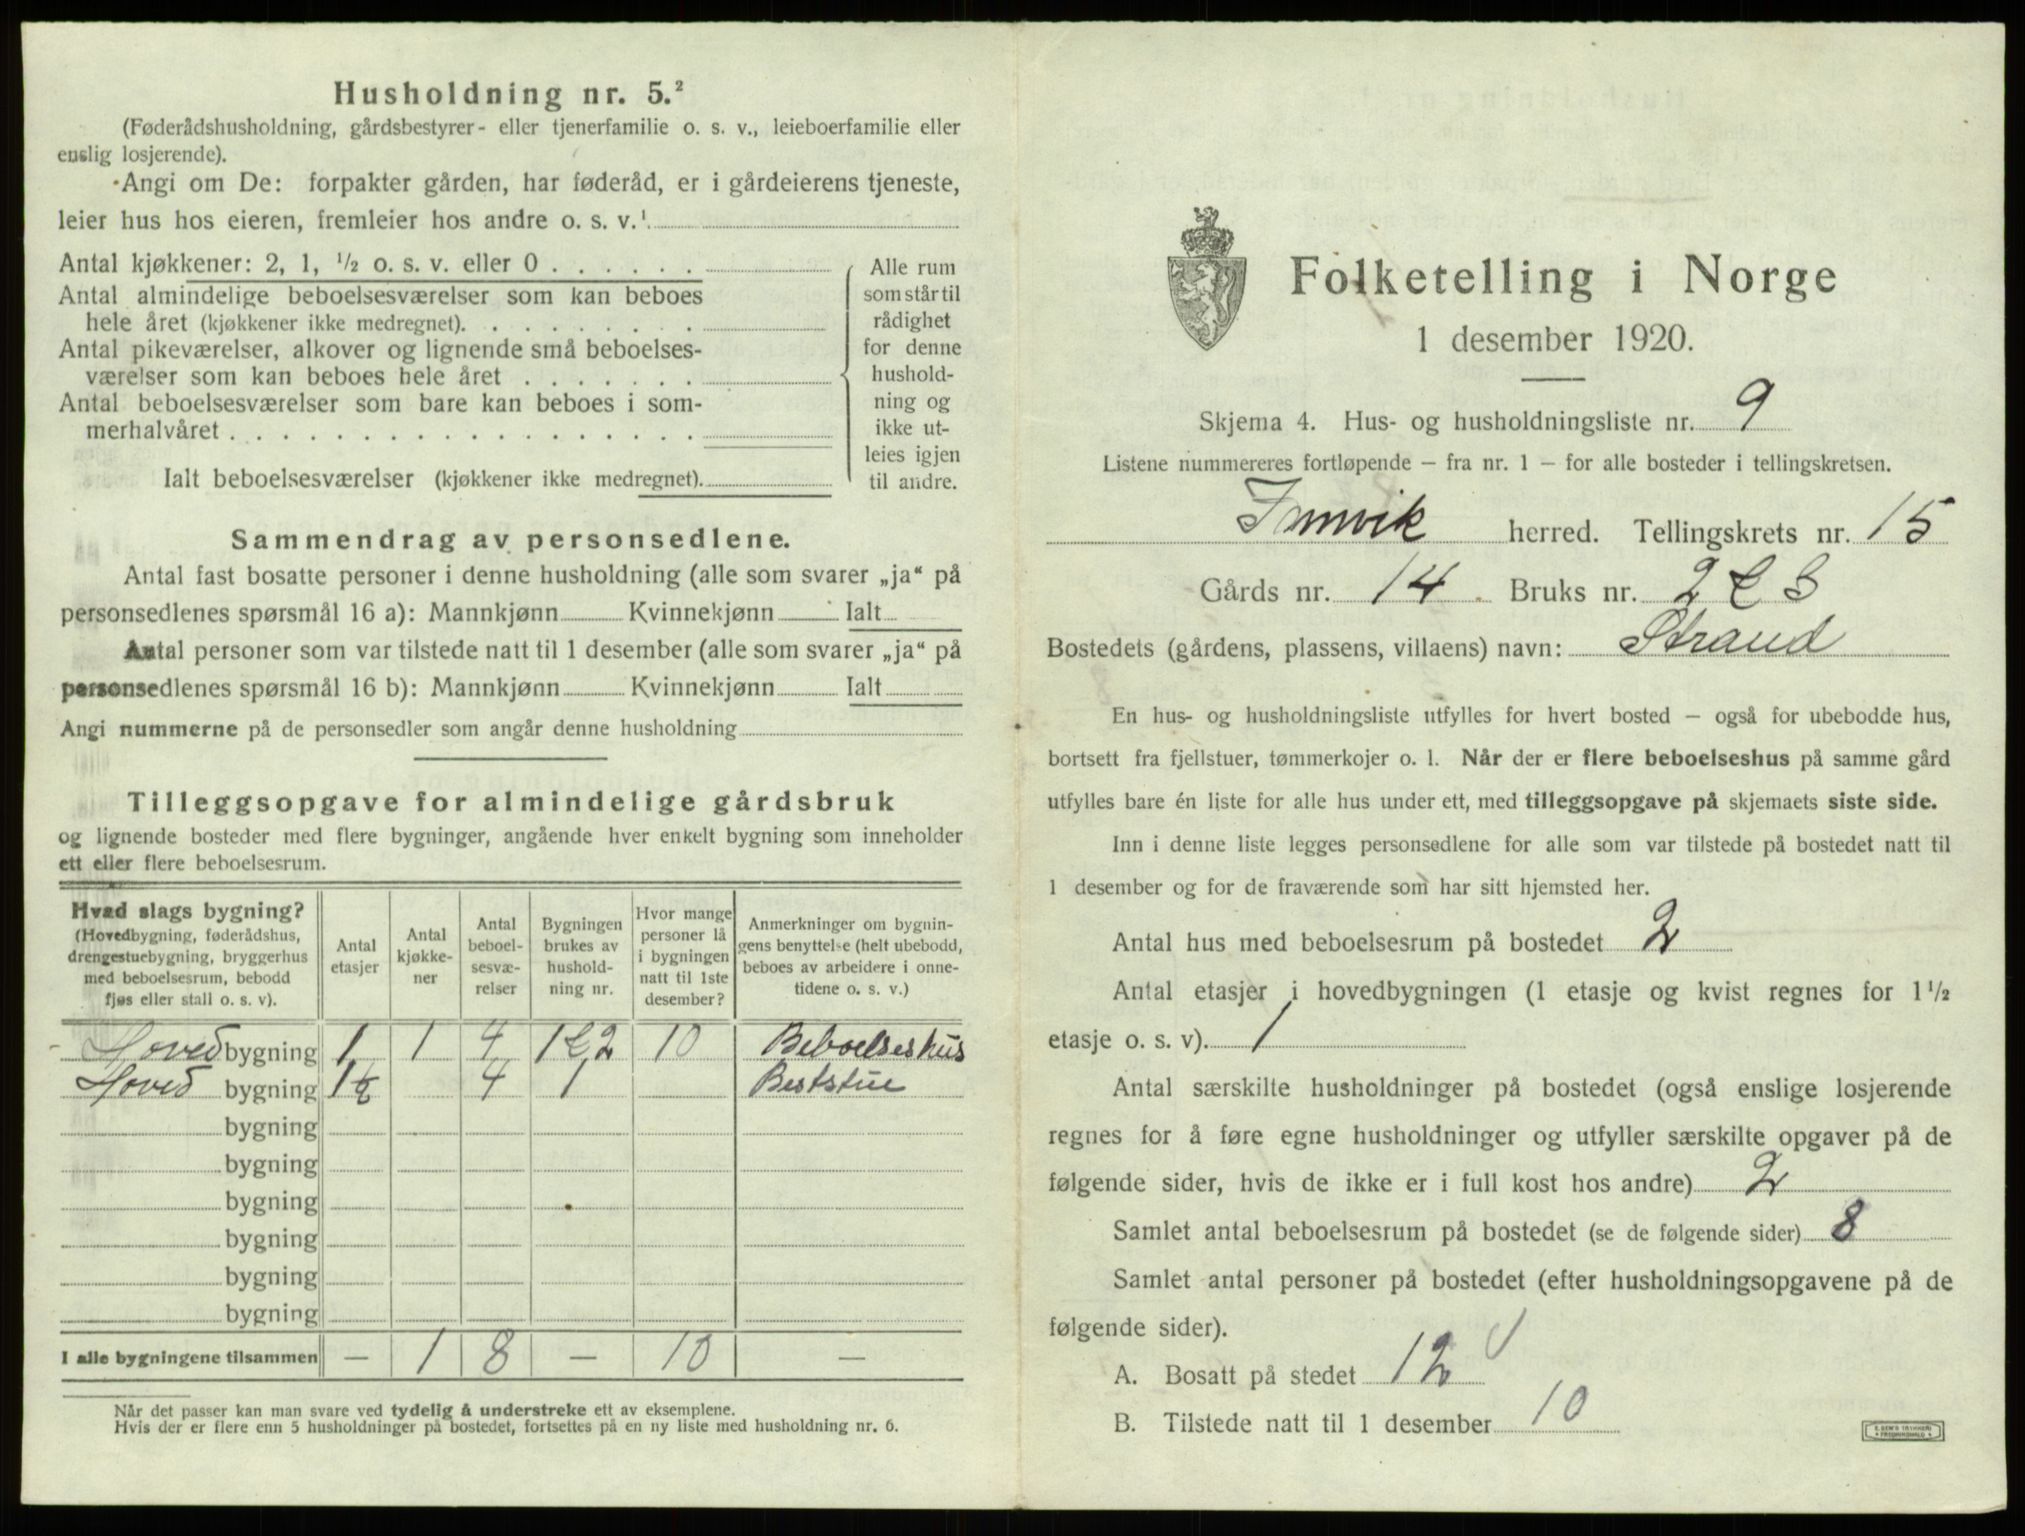 Husholdning nr. 5.²
(Føderådshusholdning, gårdsbestyrer- eller tjenerfamilie o. s. v., leieboerfamilie eller
enslig losjerende).
Angi om De: forpakter gården, har føderåd, er i gårdeierens tjeneste,
leier hus hos eieren, fremleier hos andre o. s. v.¹
Antal kjøkkener: 2, 1, ½ o. s. v. eller 0
Antal almindelige beboelsesværelser som kan beboes
hele året (kjøkkener ikke medregnet).
Antal pikeværelser, alkover og lignende små beboelses-
værelser som kan beboes hele året
Antal beboelsesværelser som bare kan beboes i som-
merhalvåret
Ialt beboelsesværelser (kjøkkener ikke medregnet).
Alle rum
som står til
rådighet
for denne
hushold-
ning og
ikke ut-
leies igjen
til andre.
Sammendrag av personsedlene.
Antal fast bosatte personer i denne husholdning (alle som svarer „ja“ på
personsedlenes spørsmål 16 a): Mannkjønn Kvinnekjønn Ialt
Antal personer som var tilstede natt til 1 desember (alle som svarer „ja“ på
personsedlenes spørsmål 16 b): Mannkjønn Kvinnekjønn Ialt
Angi nummerne på de personsedler som angår denne husholdning
Tilleggsopgave for almindelige gårdsbruk
og lignende bosteder med flere bygninger, angående hver enkelt bygning som inneholder
ett eller flere beboelsesrum.
Hvad slags bygning?
(Hovedbygning, føderådshus,
drengestuebygning, bryggerhus
med beboelsesrum, bebodd
fjøs eller stall o. s. v).
Antal
etasjer
Antal
kjøkke-
ner
Antal
beboel-
sesvæ-
relser
Bygningen
brukes av
hushold-
ning nr.
Hvor mange
personer lå
i bygningen
natt til 1ste
desember?
Anmerkninger om bygnin-
gens benyttelse (helt ubebodd,
beboes av arbeidere i onne-
tidene o. s. v.)
Hoved bygning 1 1 4 1 & 2 10 Beboelseshus
Hoved bygning 1½ 4 1 Beststue
bygning
bygning
bygning
bygning
bygning
bygning
I alle bygningene tilsammen — 1 8 — 10 —
Når det passer kan man svare ved tydelig å understreke ett av eksemplene.
Hvis der er flere enn 5 husholdninger på bostedet, fortsettes på en ny liste med husholdning nr. 6.
Folketelling i Norge
1 desember 1920.
Skjema 4. Hus- og husholdningsliste nr. 9
Listene nummereres fortløpende – fra nr. 1 – for alle bosteder i tellingskretsen.
Innvik herred. Tellingskrets nr. 15
Gårds nr. 14 Bruks nr. 2 & 3
Bostedets (gårdens, plassens, villaens) navn: Strand
En hus- og husholdningsliste utfylles for hvert bosted – også for ubebodde hus,
bortsett fra fjellstuer, tømmerkojer o. l. Når der er flere beboelseshus på samme gård
utfylles bare én liste for alle hus under ett, med tilleggsopgave på skjemaets siste side.
Inn i denne liste legges personsedlene for alle som var tilstede på bostedet natt til
1 desember og for de fraværende som har sitt hjemsted her.
Antal hus med beboelsesrum på bostedet 2
Antal etasjer i hovedbygningen (1 etasje og kvist regnes for 1½
etasje o. s. v). 1
Antal særskilte husholdninger på bostedet (også enslige losjerende
regnes for å føre egne husholdninger og utfyller særskilte opgaver på de
følgende sider, hvis de ikke er i full kost hos andre) 2
Samlet antal beboelsesrum på bostedet (se de følgende sider) 8
Samlet antal personer på bostedet (efter husholdningsopgavene på de
følgende sider).
A. Bosatt på stedet 12
B. Tilstede natt til 1 desember 10